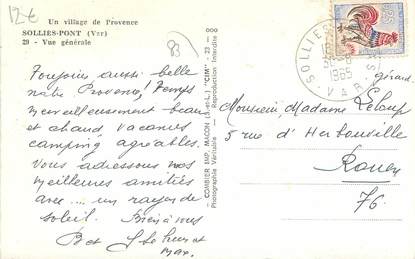 12€
Un village de Provence
SOLLIES-PONT (Var)
29 - Vue générale
83
Toujours aussi belle
notre Provence! Temps
merveilleusement beau
et chaud, vacances
camping agréables.
Vous adressons nos
meilleures amitiés
avec ... un rayon de
soleil. Bien à vous
COMBIER IMP. MACON (S.-et-L.) "CIM" - 23 - 000
Photographie Véritable - Reproduction Interdite
SOLLIES
1965
VAR
0,25
gérard.
Monsieur, Madame Leloup
5 rue d'Herbouville
Rouen
76.